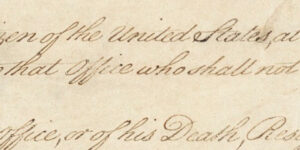 zen of the United States, at
that Office who shall not
Office, or of his Death, Res